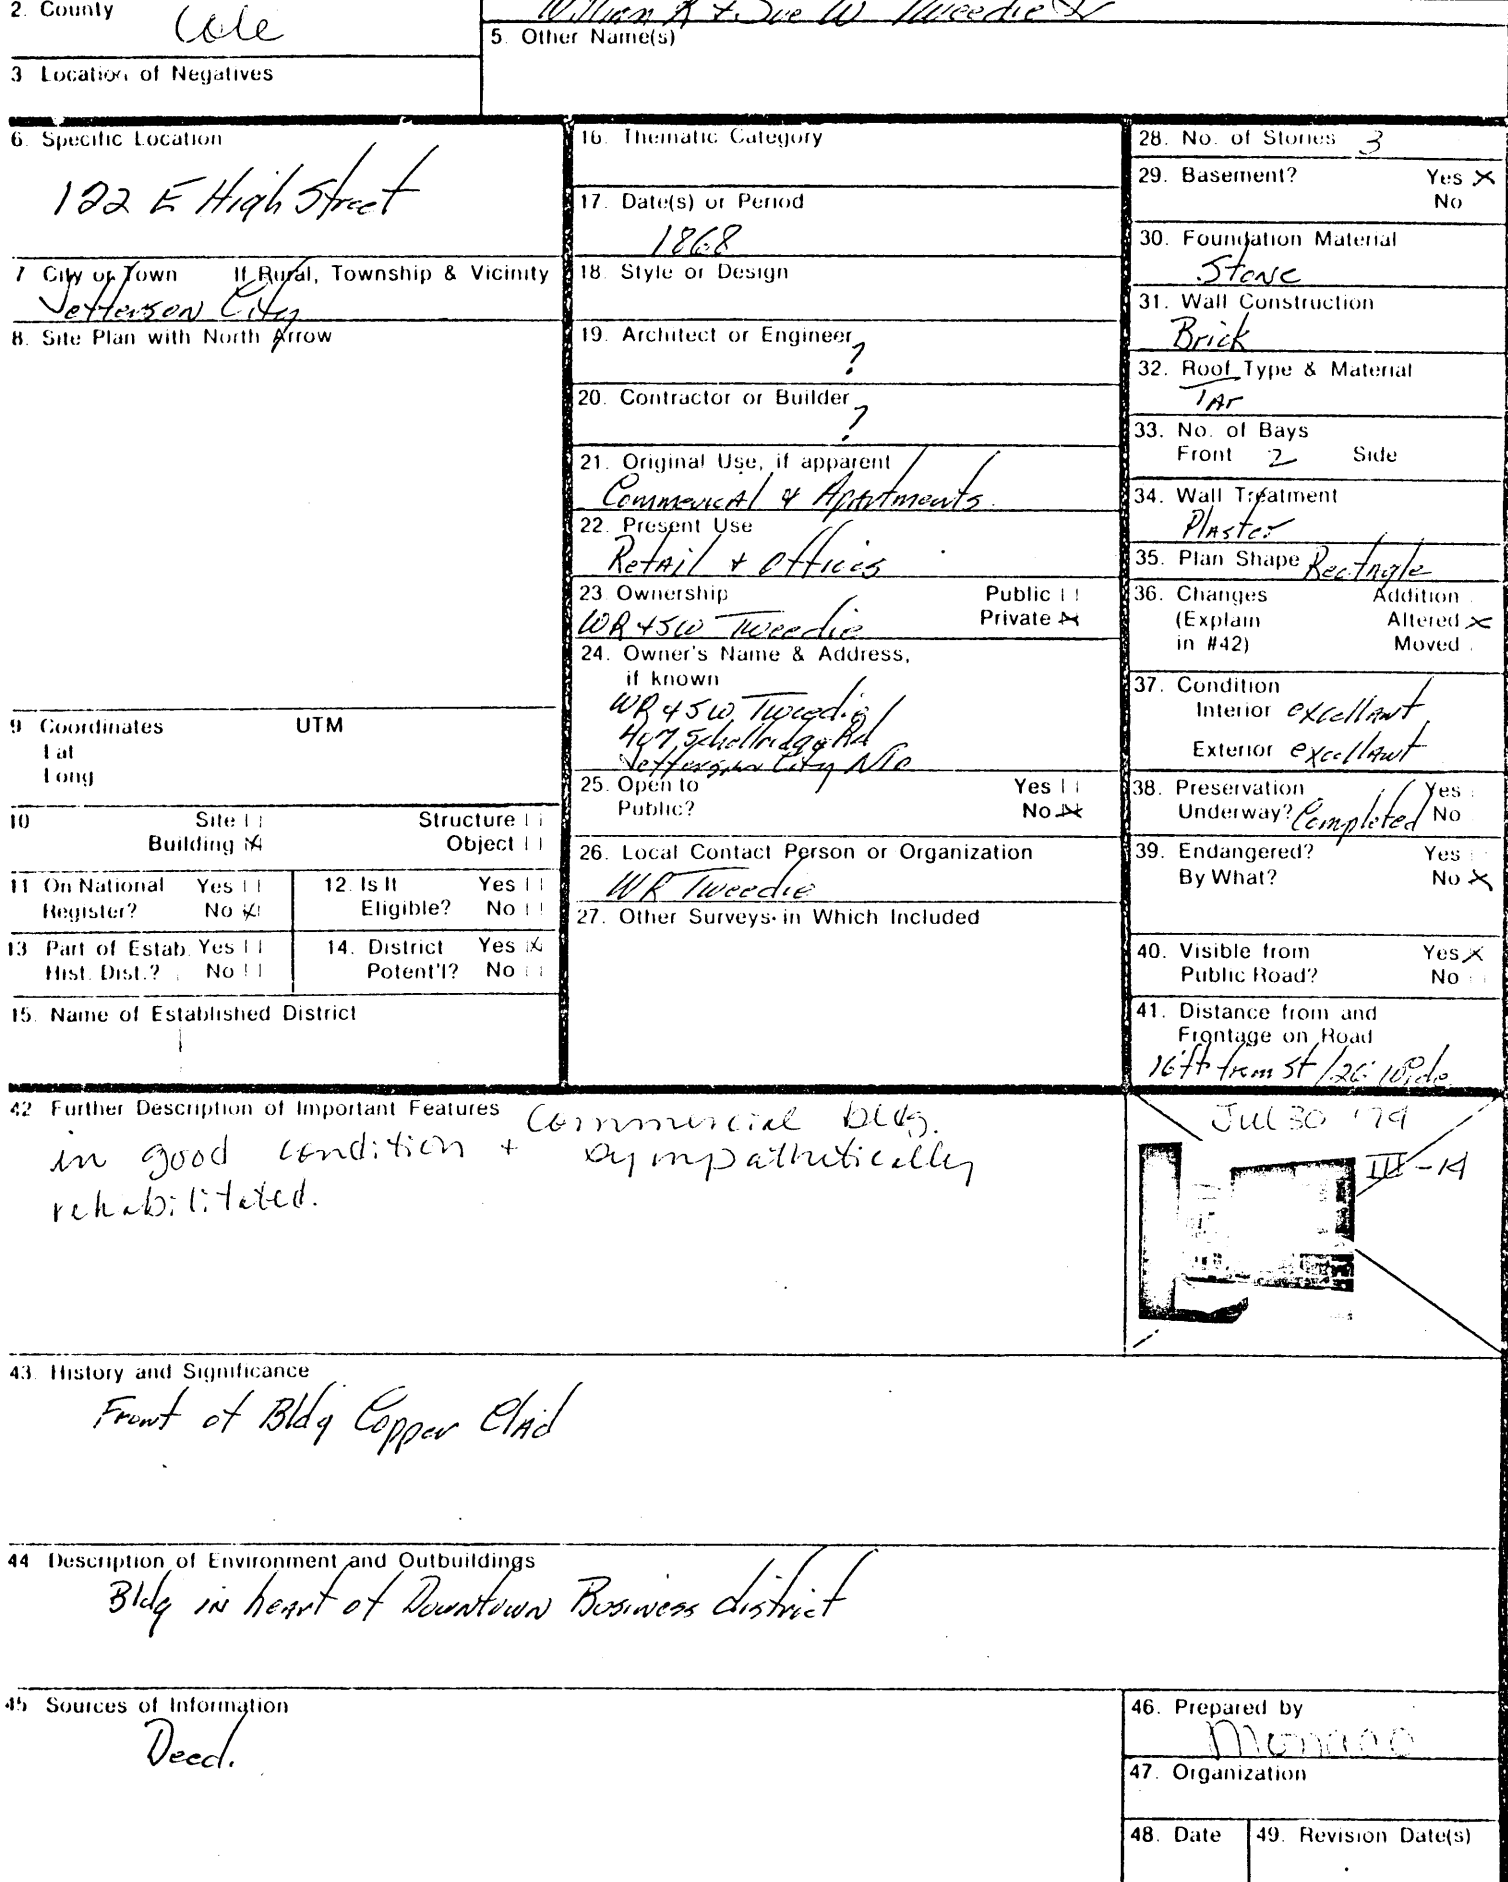 2. County
Cole
William R & Sue W Tweedie
5. Other Name(s)
3 Location of Negatives
6. Specific Location
122 E High Street
7 City or Town If Rural, Township & Vicinity
Jefferson City
8. Site Plan with North Arrow
9 Coordinates UTM
Lat
Long
10 Site Structure
Building X Object
11 On National Yes
Register? No X
12. Is It Yes
Eligible? No
13 Part of Estab. Yes
Hist. Dist.? No
14. District Yes X
Potent'l? No
15. Name of Established District
16. Thematic Category
17. Date(s) or Period
1868
18. Style or Design
19. Architect or Engineer
?
20. Contractor or Builder
?
21. Original Use, if apparent
Commerical & Apartments
22. Present Use
Retail & offices
23. Ownership Public
WR & SW Tweedie Private X
24. Owner's Name & Address,
if known
WR & SW Tweedie
Jefferson City Mo
25. Open to Yes
Public? No X
26. Local Contact Person or Organization
WR Tweedie
27. Other Surveys in Which Included
28. No. of Stories 3
29. Basement? Yes X
No
30. Foundation Material
Stone
31. Wall Construction
Brick
32. Roof Type & Material
TAr
33. No. of Bays
Front 2 Side
34. Wall Treatment
Plaster
35. Plan Shape Rectngle
36. Changes Addition
(Explain Altered X
in #42) Moved
37. Condition
Interior excellant
Exterior excellant
38. Preservation Yes
Underway? Completed No
39. Endangered? Yes
By What? No X
40. Visible from Yes X
Public Road? No
41. Distance from and
Frontage on Road
16 ft from st / 26' Wide
42 Further Description of Important Features Commercial bldg.
in good condition + sympathetically
rehabilitated.
Jul 30 '79
III-14
43. History and Significance
Front of Bldg Copper Clad
44 Description of Environment and Outbuildings
Bldg in heart of Downtown Business district
45 Sources of Information
Deed.
46. Prepared by
47. Organization
48. Date
49. Revision Date(s)